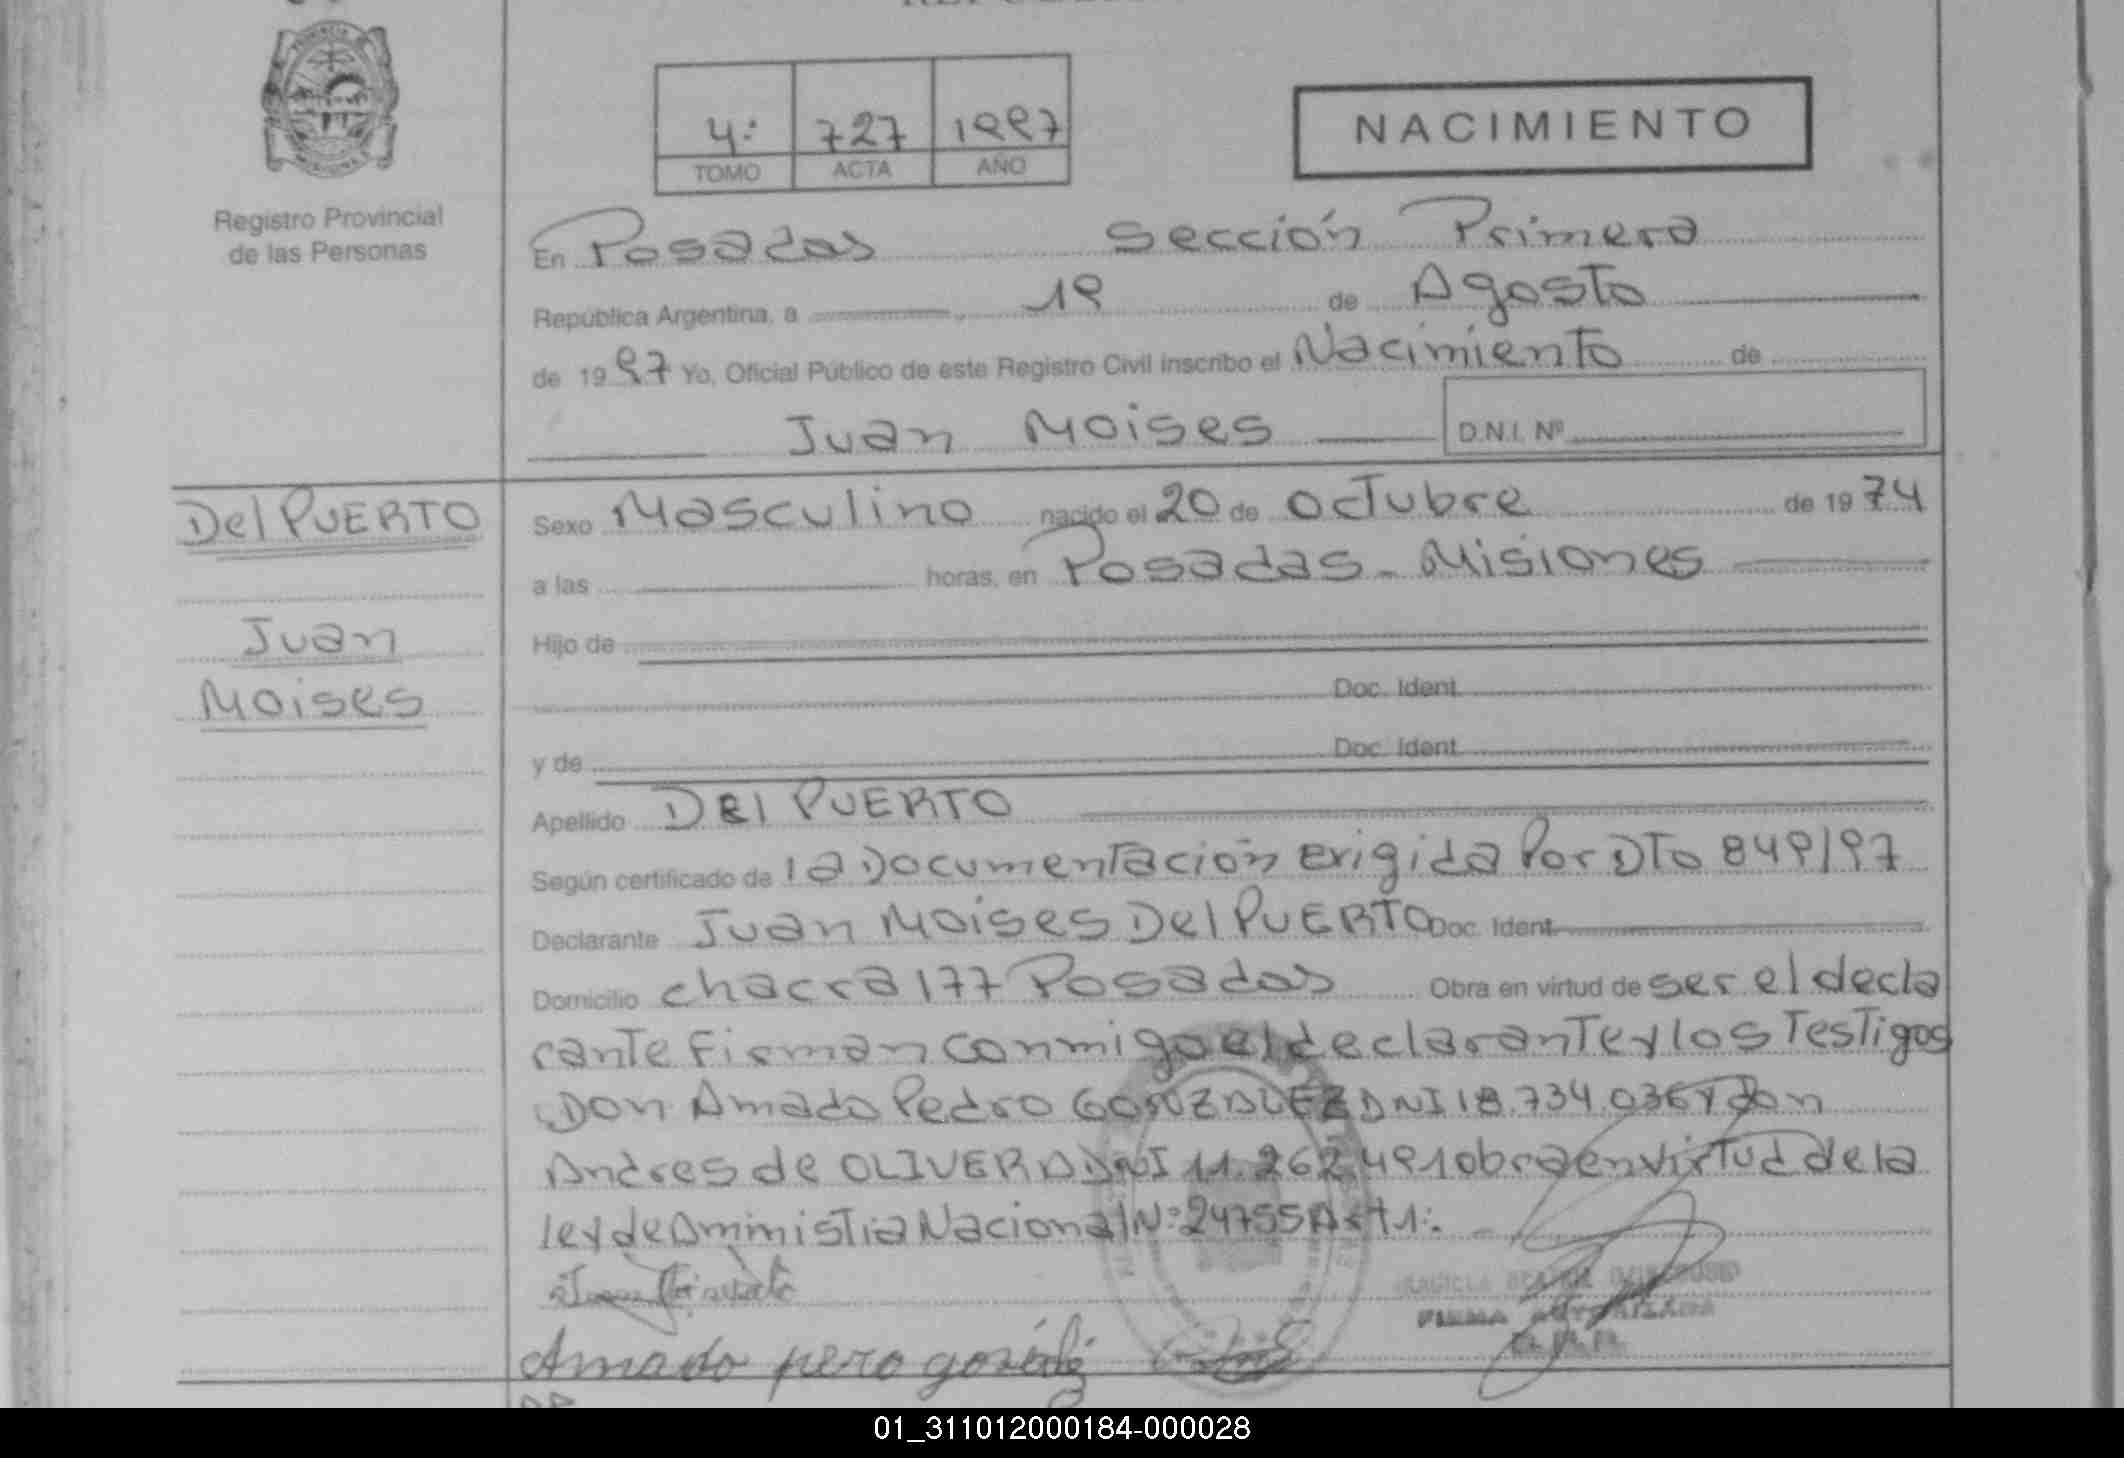 4:
727
1997
TOMO
ACTA
AÑO
NACIMIENTO
Registro Provincial
de las Personas
En Posadas Sección Primera
República Argentina, a 19 de Agosto
de 1997 Yo, Oficial Público de este Registro Civil inscribo el Nacimiento de
Juan Moises
D.N.I. Nº
Del PUERTO
Juan
Moises
Sexo Masculino nacido el 20 de octubre de 1974
a las horas, en Posadas - Misiones
Hijo de
Doc. Ident.
y de Doc. Ident.
Apellido DEl PUERTO
Según certificado de la Documentación exigida Por DTo 849/97
Declarante Juan Moises Del PUERTO Doc. Ident.
Domicilio chacra 177 Posadas Obra en virtud de ser el decla
rante firman conmigo el declarante y los Testigos
Don Amado Pedro GONZALEZ DNI 18.734.036 y don
Andres de OLIVERA DNI 11.262.491 obra en virtud de la
ley de Aministia Nacional N:24755 Art 1:.
Amado pero
FIRMA AUTORIZADA
01_311012000184-000028